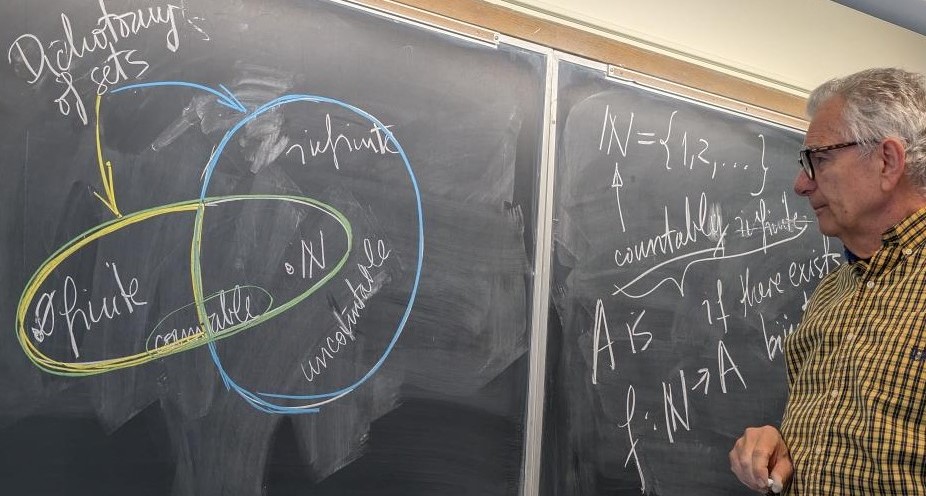 Dichotomy
of sets
infinite
∅ finite
• N
countable
uncountable
ℕ = {1,2,...}
countably infinite
A is
if there exists
f: ℕ → A